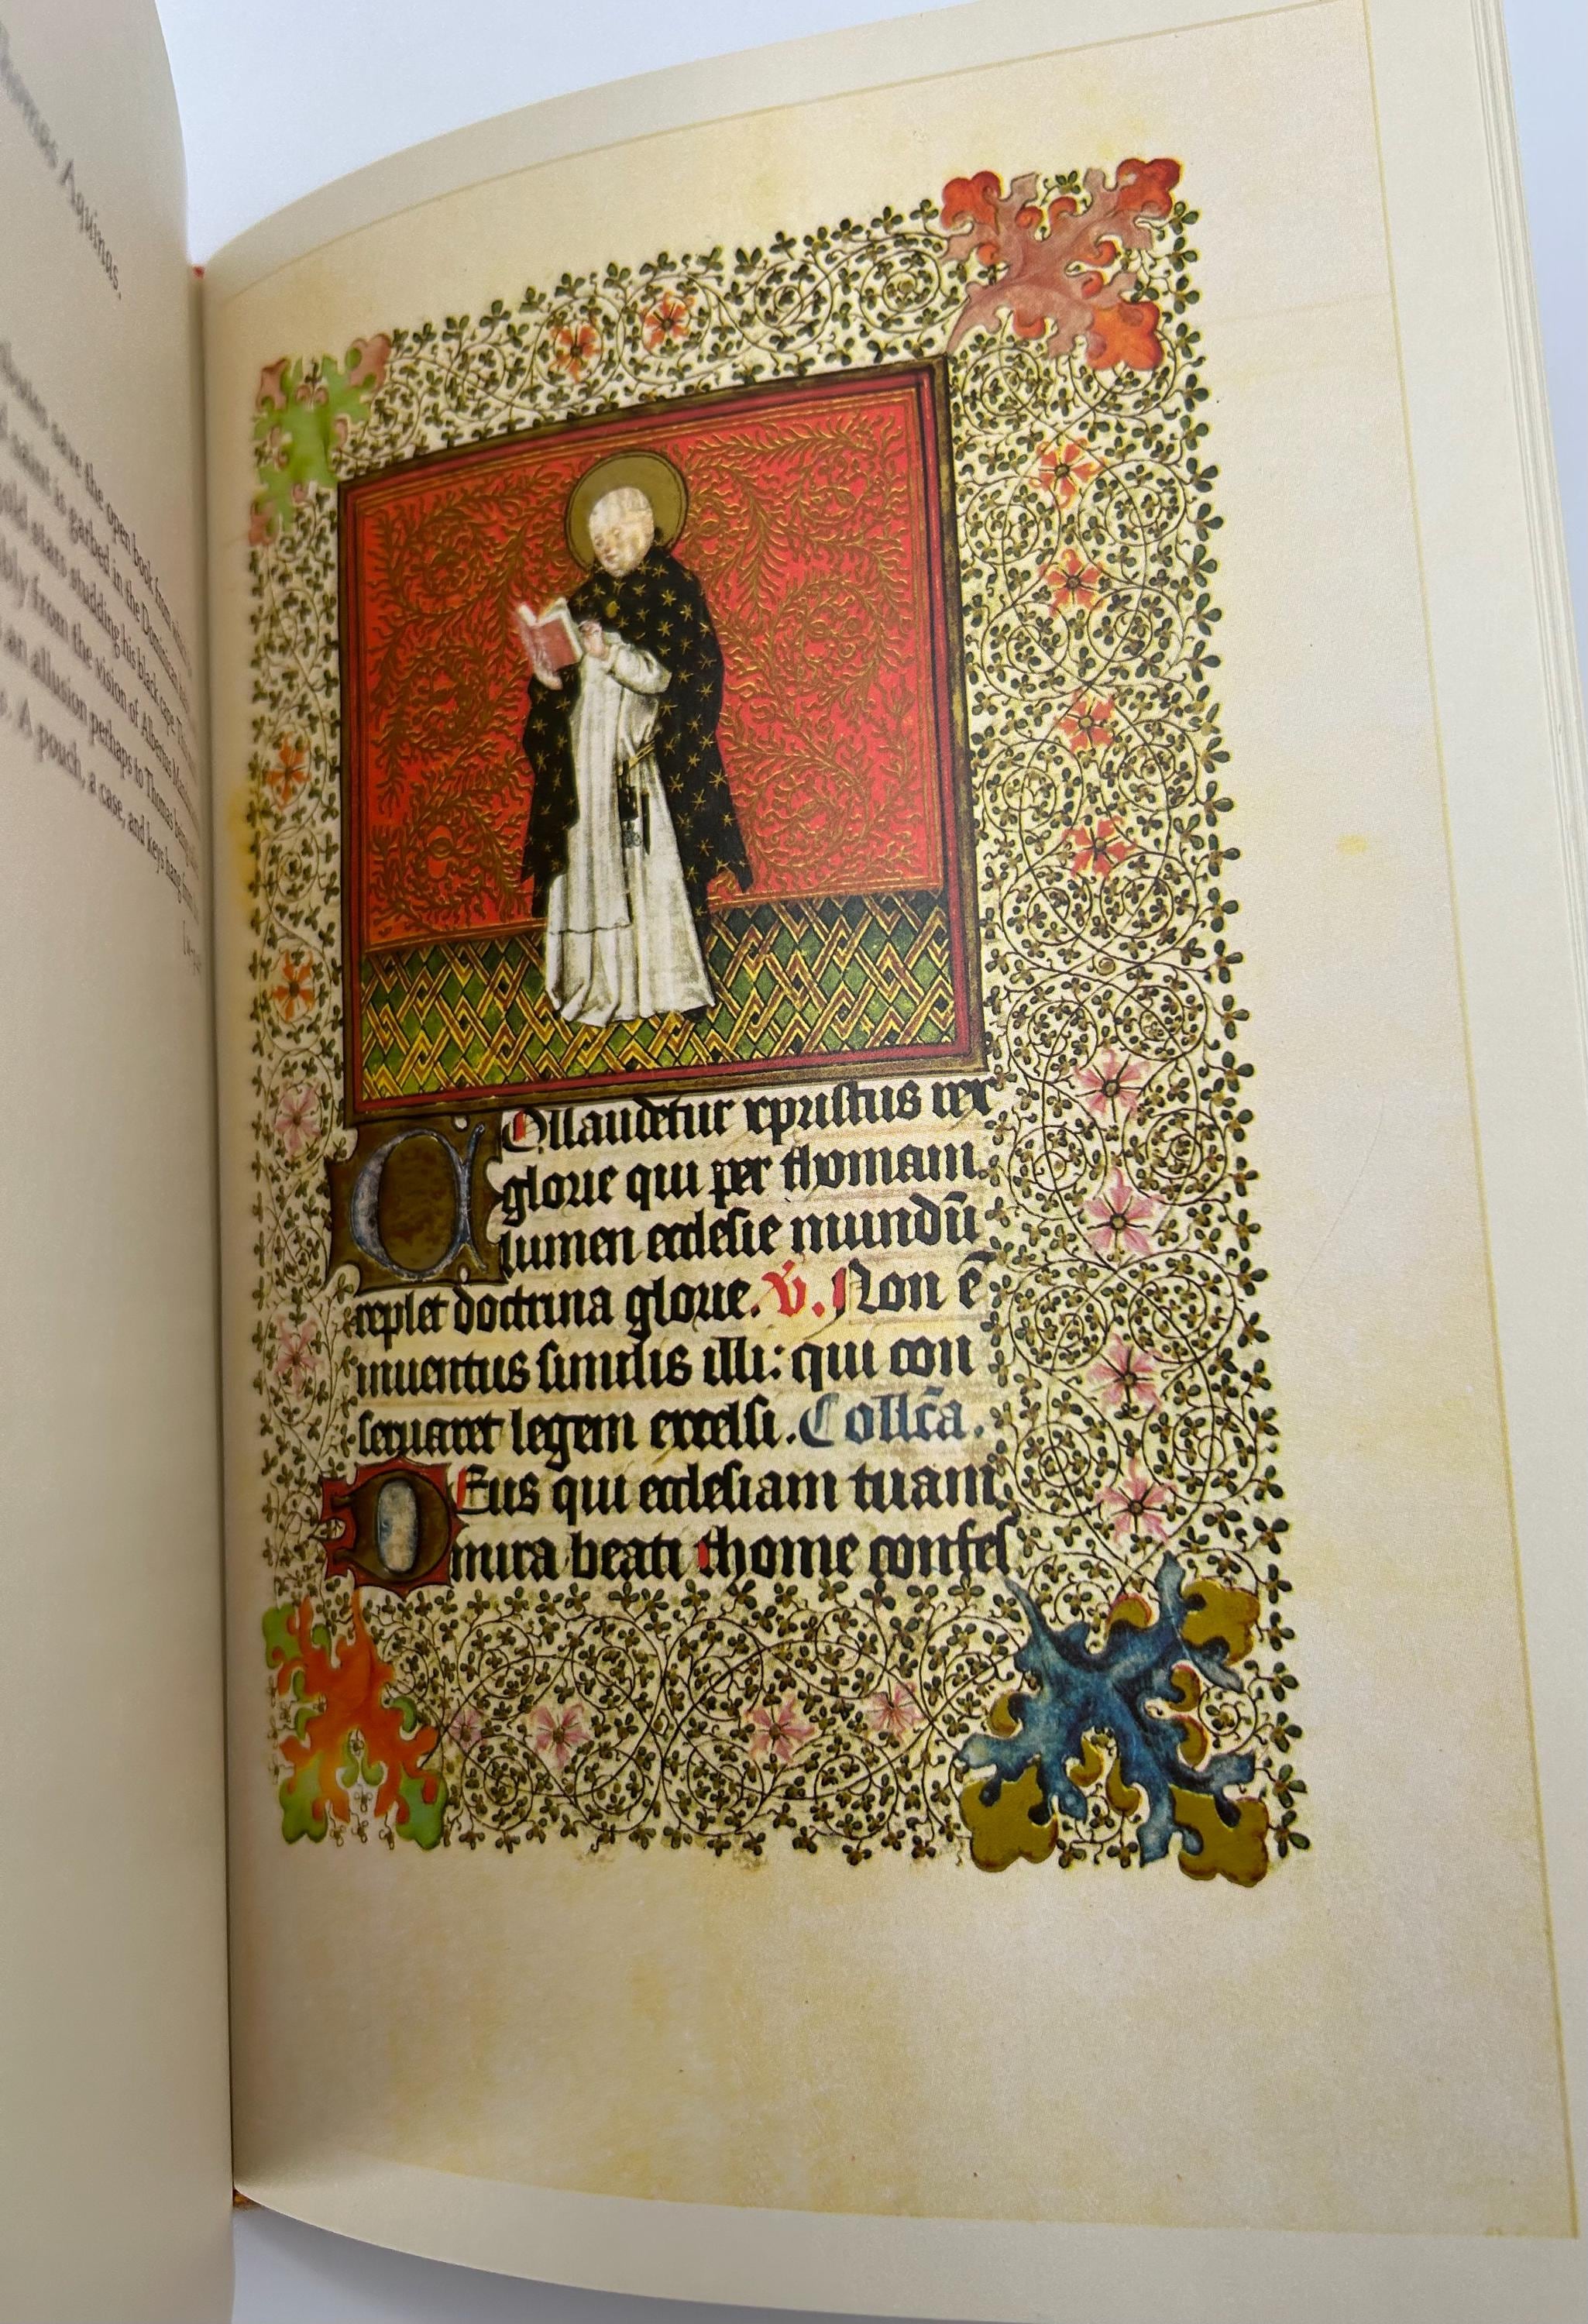 Aquinas.
save the open book from
saint is garbed in the Dominican
gold stars studding his black cape. This
from the vision of Albertus
an allusion perhaps to Thomas being
A pouch, a case, and keys hang from
COllaudetur xpristus rex
glorie qui per thomam
lumen ecclesie mundū
replet doctrina glorie. v̄. Non ē
inuentus similis illi: qui con
seruaret legem excelsi. Collc̄a.
DEus qui ecclesiam tuam
mira beati thome confes